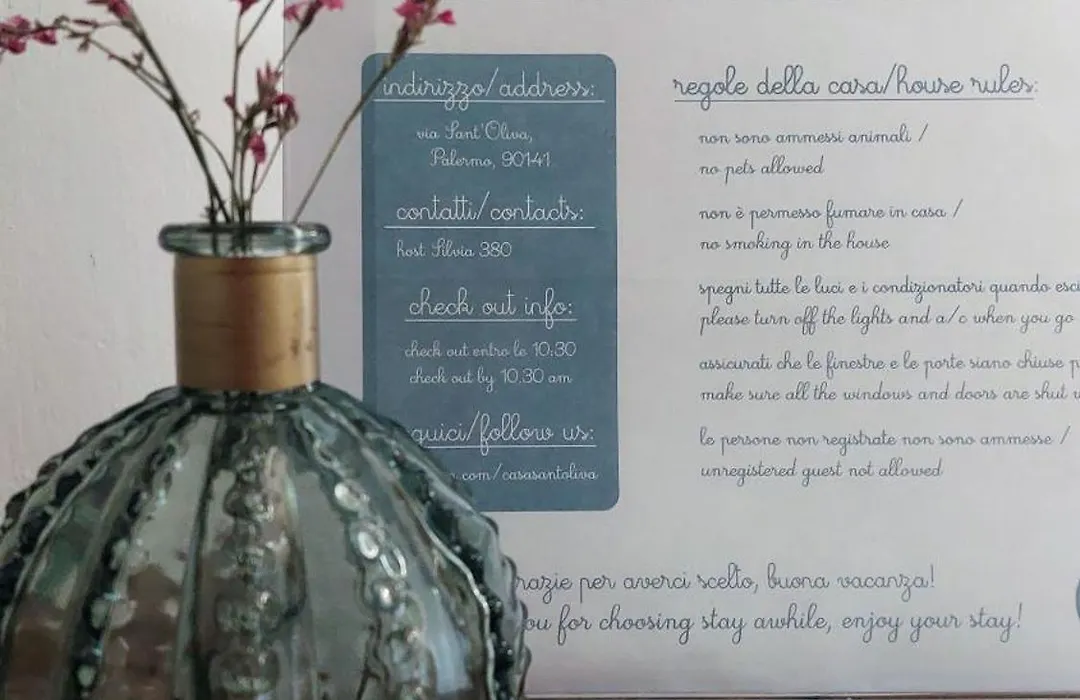 indirizzo/address:
via Sant'Oliva,
Palermo, 90141
contatti/contacts:
host Silvia 380
check out info:
check out entro le 10:30
check out by 10.30 am
guici/follow us:
.com/casasantoliva
regole della casa/house rules:
non sono ammessi animali /
no pets allowed
non è permesso fumare in casa /
no smoking in the house
spegni tutte le luci e i condizionatori quando esci
please turn off the lights and a/c when you go
assicurati che le finestre e le porte siano chiuse
make sure all the windows and doors are shut
le persone non registrate non sono ammesse /
unregistered guest not allowed
razie per averci scelto, buona vacanza!
ou for choosing stay awhile, enjoy your stay!